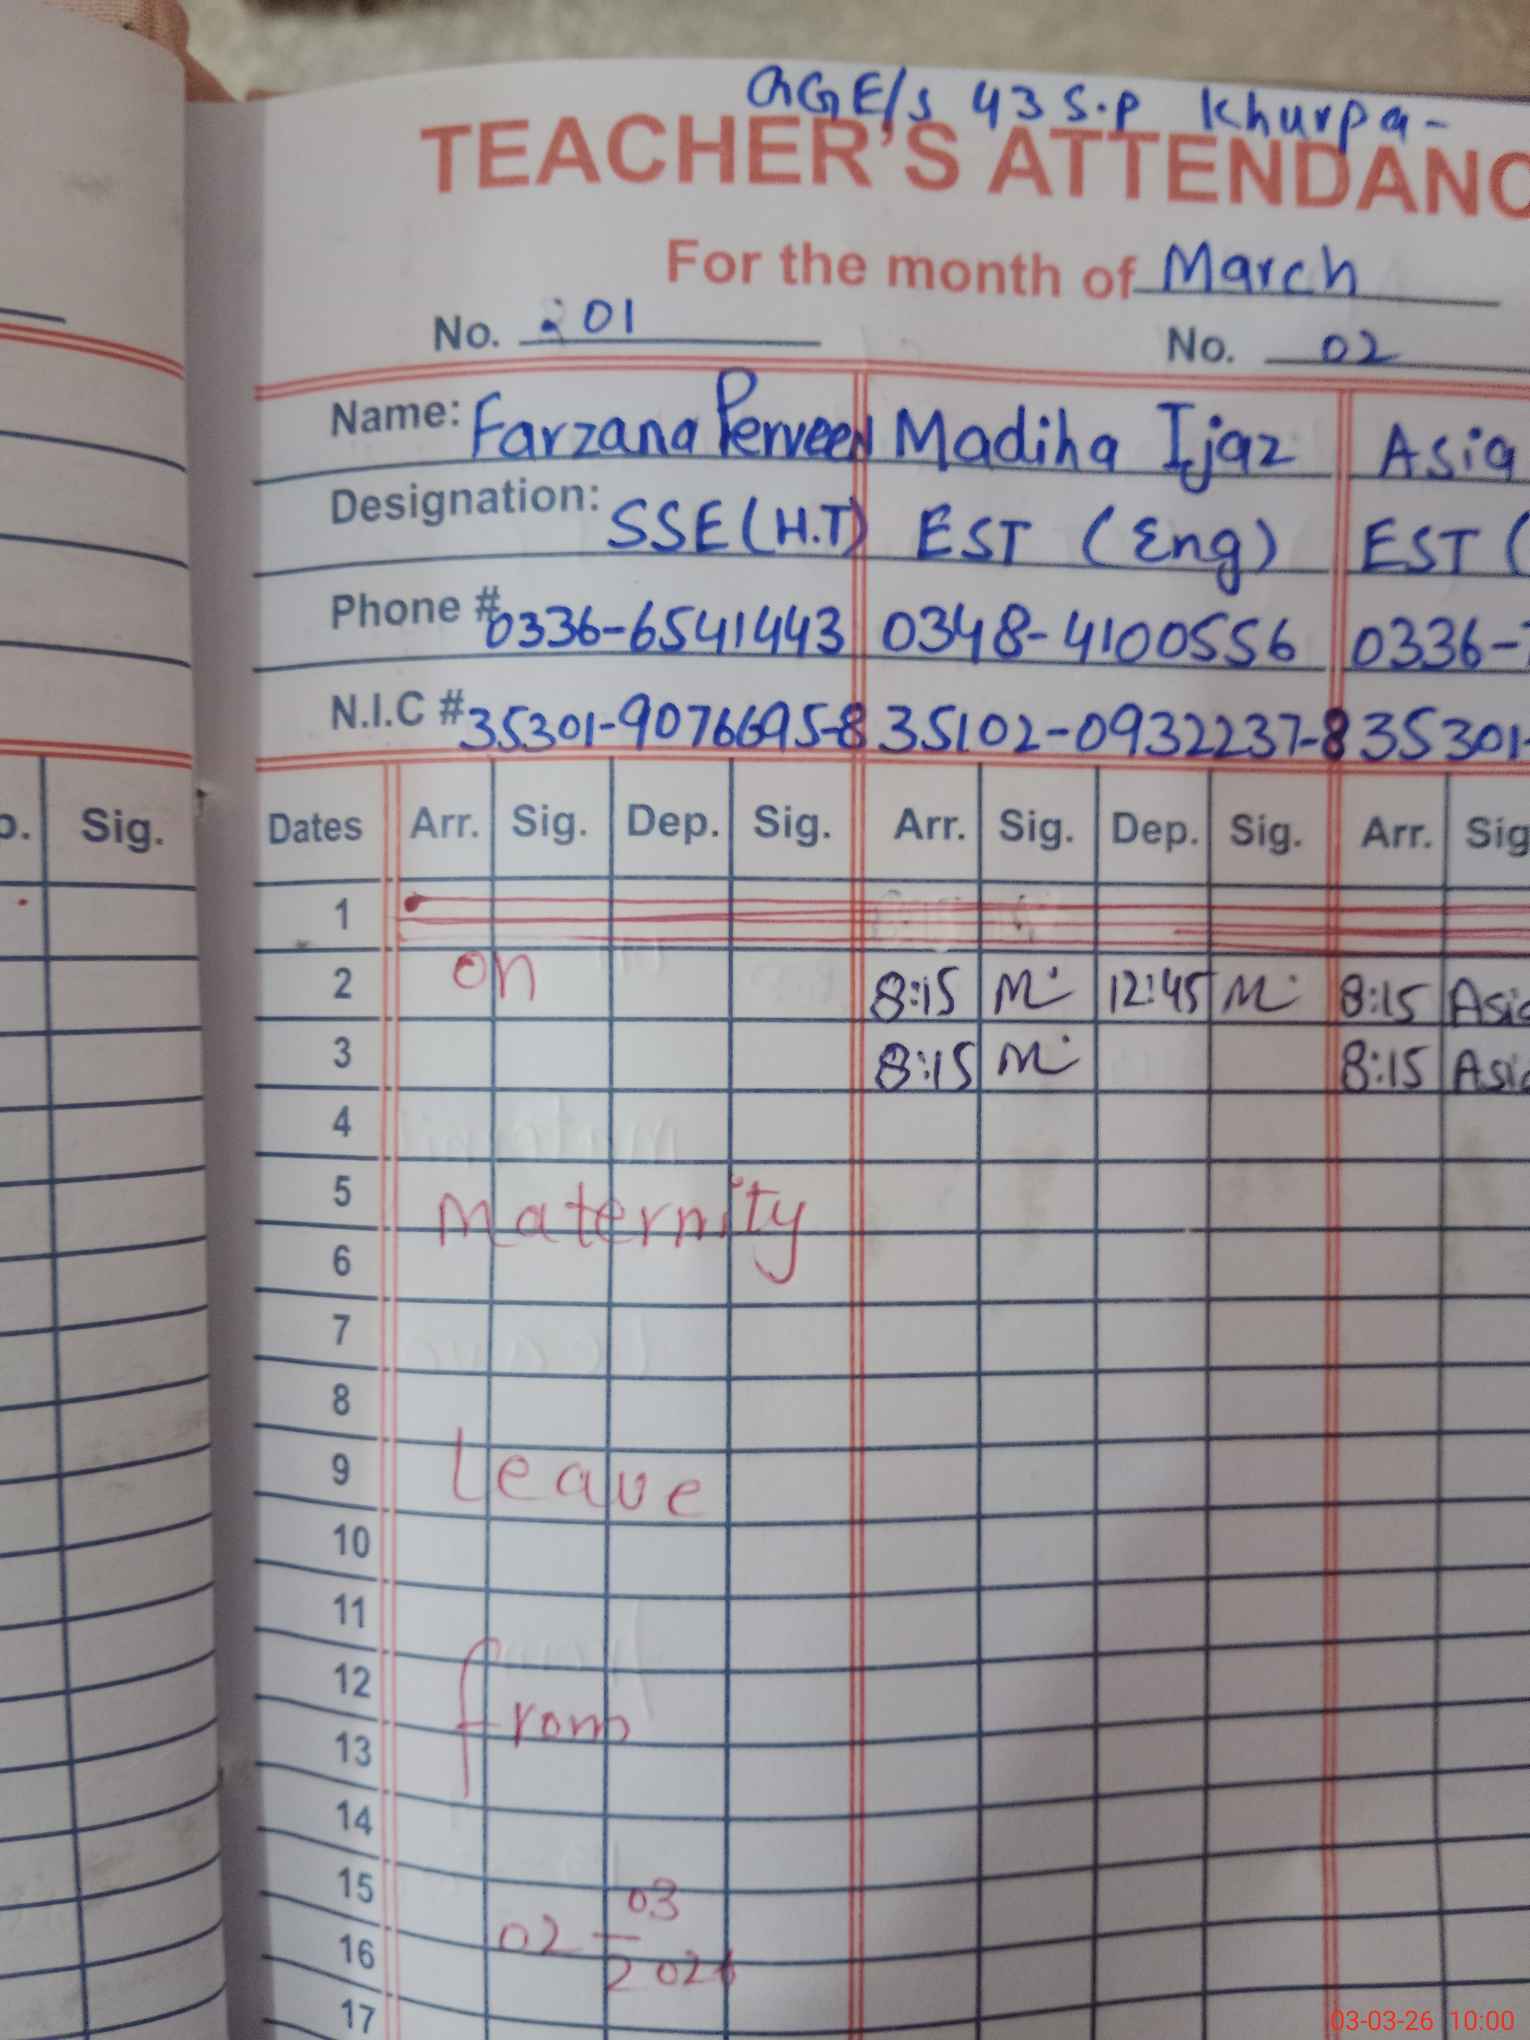 GGE/s 43 S.P Khurpa-
TEACHER'S ATTENDANC
For the month of March
No. 01 No. 02
Name: Farzana Perveen Madiha Ijaz Asia
Designation: SSE (H.T) EST (Eng) EST (
Phone # 0336-6541443 0348-4100556 0336-
N.I.C # 35301-9076695-8 35102-0932237-8 35301-
Sig. Dates Arr. Sig. Dep. Sig. Arr. Sig. Dep. Sig. Arr. Sig
1
2 on 8:15 M 12:45 M 8:15 Asia
3 8:15 M 8:15 Asia
4
5 Maternity
6
7
8
9 Leave
10
11
12
13 from
14
15 03
16 02 - 2026
17
03-03-26 10:00